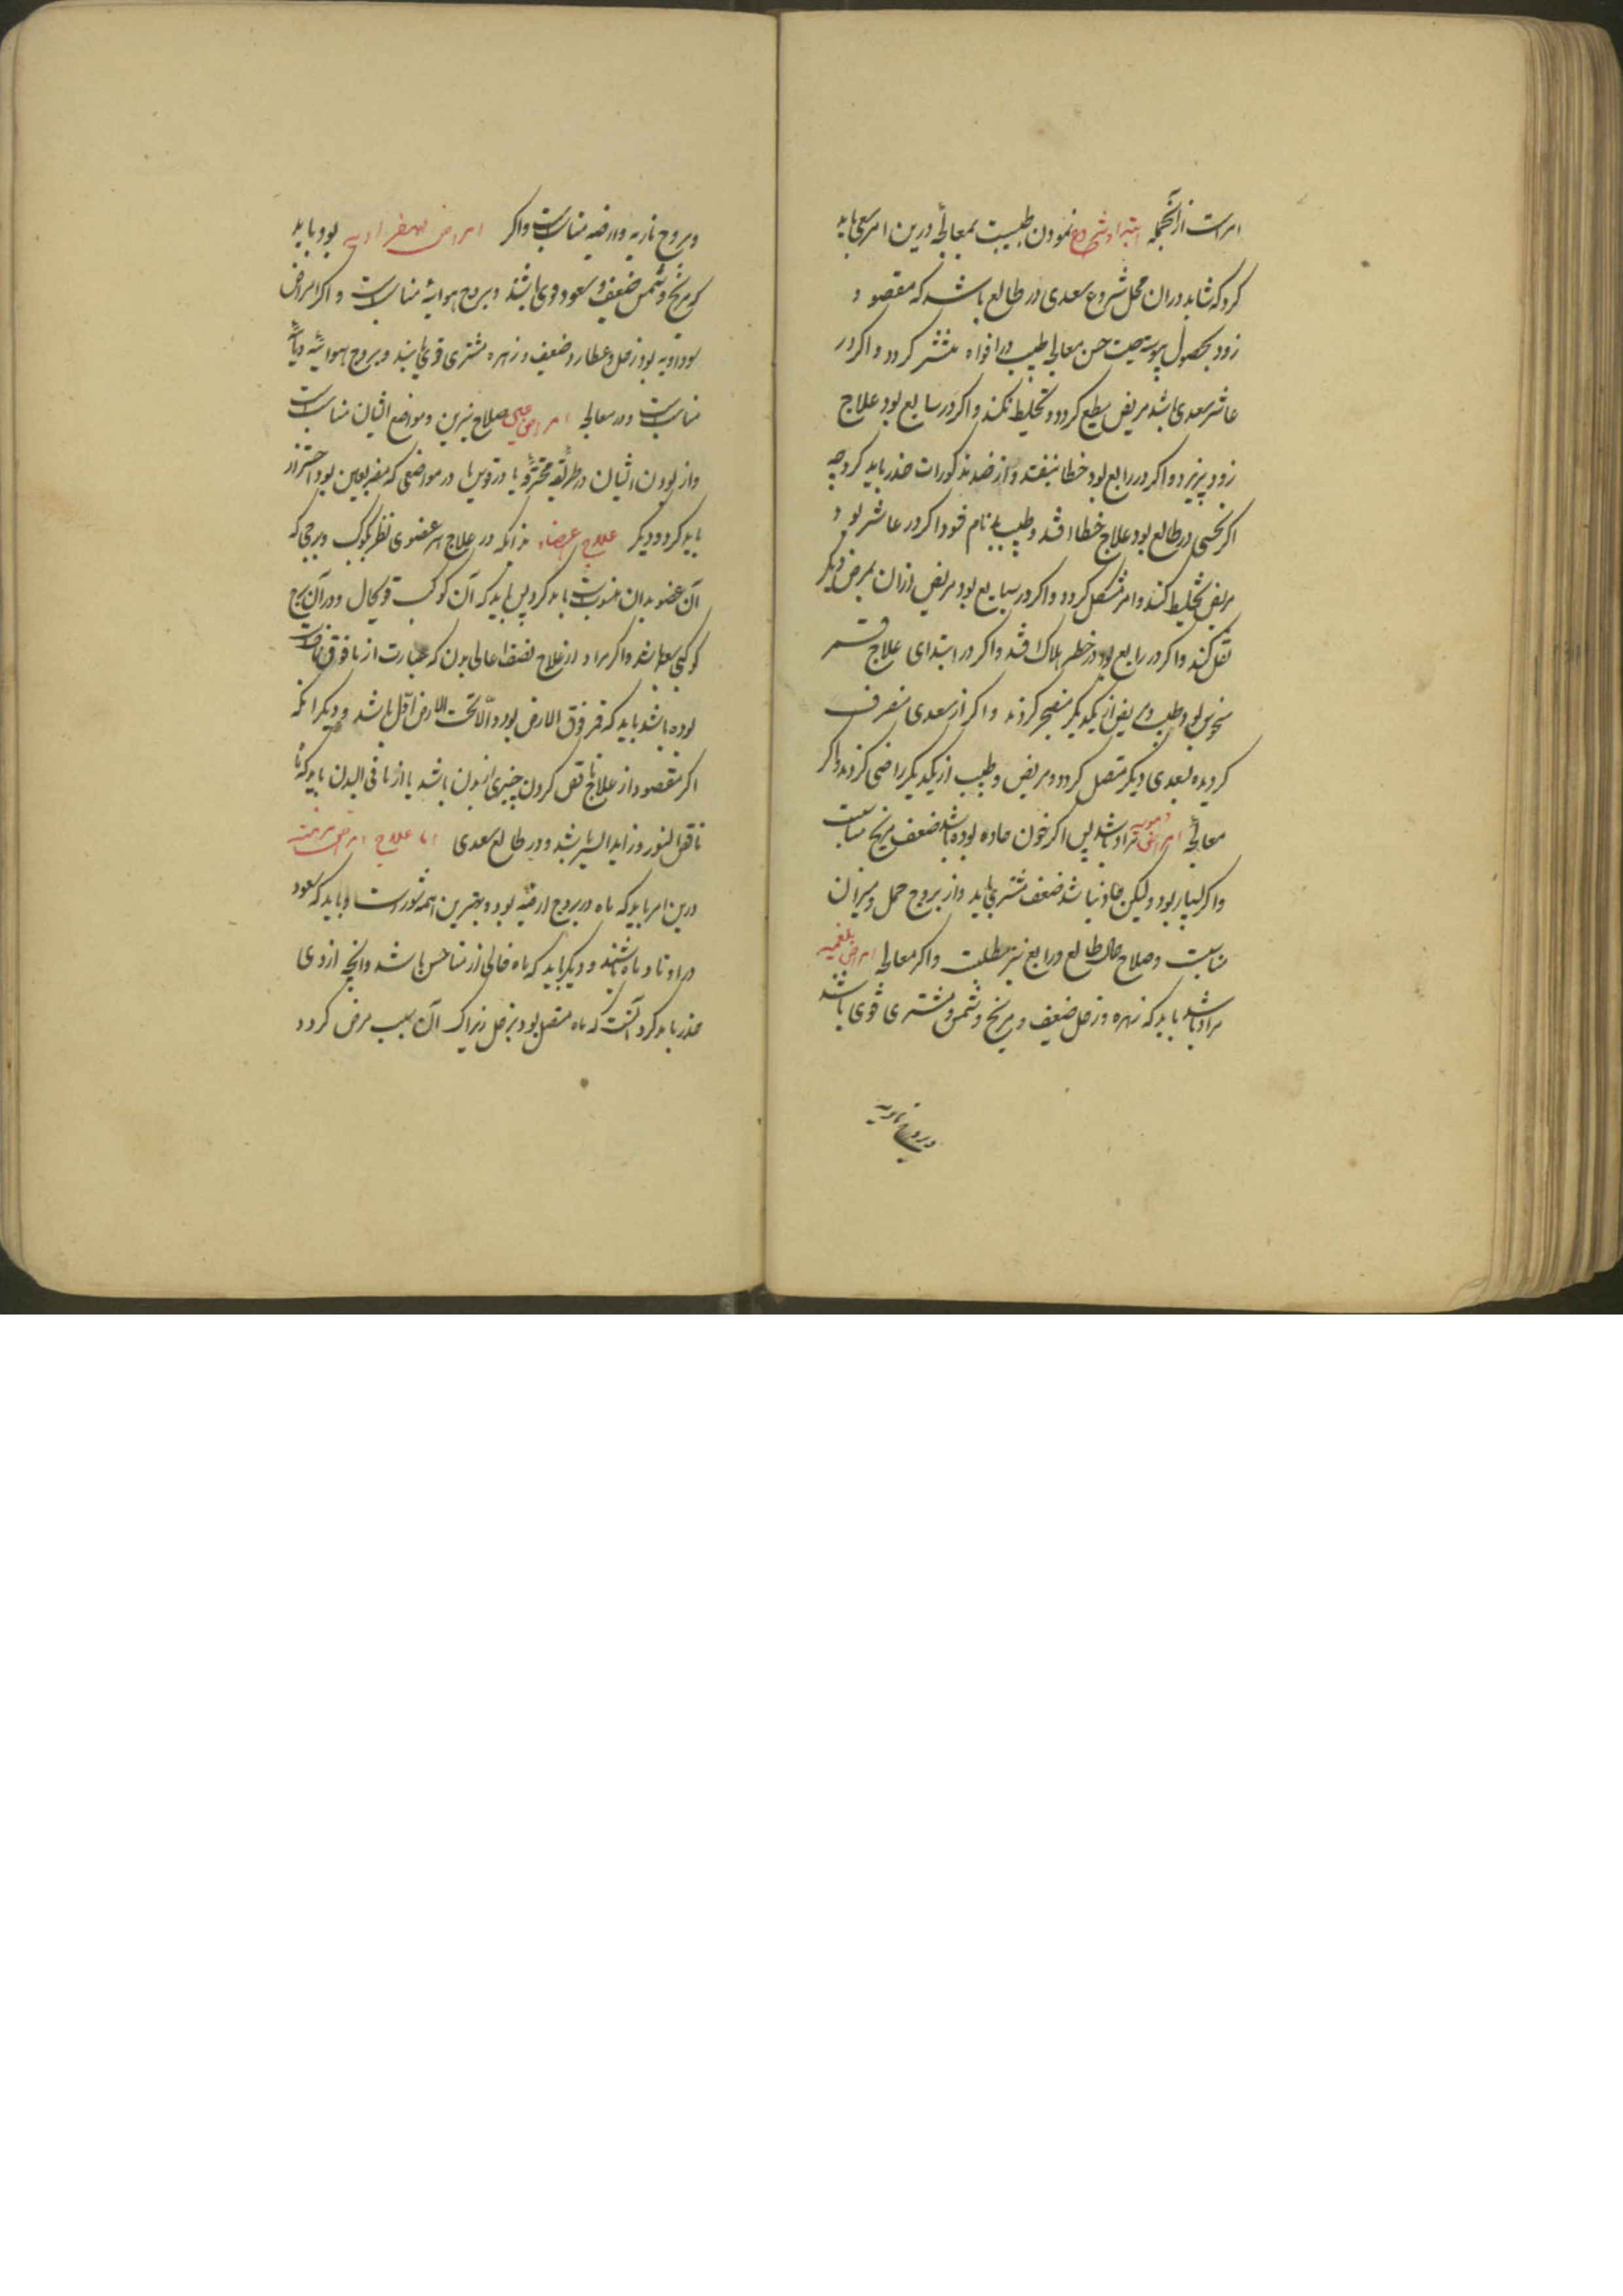 امراست ازآنجمله ابتدا و شروع نمودن طبیبست بمعالجهٔ درین امر سعی باید
کرد که شاید دران محل شروع سعدی در طالع باشد که مقصود
زود بحصول پیوسته صیت حسن معالجهٔ طبیب در افواه منتشر کردد و اکر در
عاشر سعدی باشد مریض مطیع کردد و تخلیط نکند و اکر در سابع بود علاج
زود پذیرد و اکر در رابع بود خطا نیفتد و از ضد مذکورات حذر باید کرد چه
اکر نحسی در طالع بود علاج خطا افتد و طبیب بدنام شود و اکر در عاشر بود
مریض تخلیط کند و امر مشکل کردد و اکر در سابع بود مریض ازان بمرض دیکر
نقل کند و اکر در رابع بود در خطر هلاک افتد و اکر در ابتدای علاج قمر
منحوس بود طبیب و مریض از یکدیکر منضجر کردند و اکر از سعدی منصرف
کردیده بسعدی دیکر متصل کردد مریض و طبیب از یکدیکر راضی کردند و اکر
معالجهٔ امراض دمویه مراد باشد پس اکر خون حاده بوده باشد ضعف مریخ مناسبت
و اکر بسیار بود ولیکن حاد نباشد ضعف مشتری باید و از بروج حمل و میزان
مناسبت و صلاح حال طالع و رابع نیز مطلبست و اکر معالجهٔ امراض بلغمیه
مراد باشد باید که زهره و زحل ضعیف و مریخ و شمس و مشتری قوی باشد
و بروج ناریه
و بروج ناریه و ارضیه مناسبست و اکر امراض صفراویه بود باید
که مریخ و شمس ضعیف و سعود قوی باشند و بروج هوائیهٔ مناسبست و اکر امراض
سوداویه بود زحل و عطارد ضعیف و زهره مشتری قوی باشند و بروج هوائیه و مائیه
مناسبست و در معالجهٔ امراض عین صلاح نیرین و مواضع ایشان مناسبست
و از بودن ایشان در طریقهٔ محترقه یا در قوس یا در مواضعی که مضر بعین بود احتراز
باید کرد و دیکر علاج اعضاء بدانکه در علاج هر عضوی نظر بکوکب و برجی که
آن عضو بدان منسوبست باید کرد پس باید که آن کوکب قویحال و در آن برج
کوکبی سعد باشد و اکر مراد از علاج نصف اعالی بدن که عبارت از مافوق نافست
بوده باشد باید که قمر فوق الارض بود و الا تحت الارض اقل باشد و دیکر انکه
اکر مقصود از علاج ناقص کردن چیزی از بدن باشد یا از ما فی البدن باید که ماه
ناقص النور و زاید السیر باشد و در طالع سعدی اما علاج امراض مزمنه
درین امر باید که ماه در بروج ارضیه بود و بهترین همه ثور است و باید که سعود
در اوتاد ماه باشند و دیکر باید که ماه خالی از مناحس باشد و آنچه ازوی
حذر باید کرد آنست که ماه متصل بود بزحل زیرا که آن سبب مرض کردد